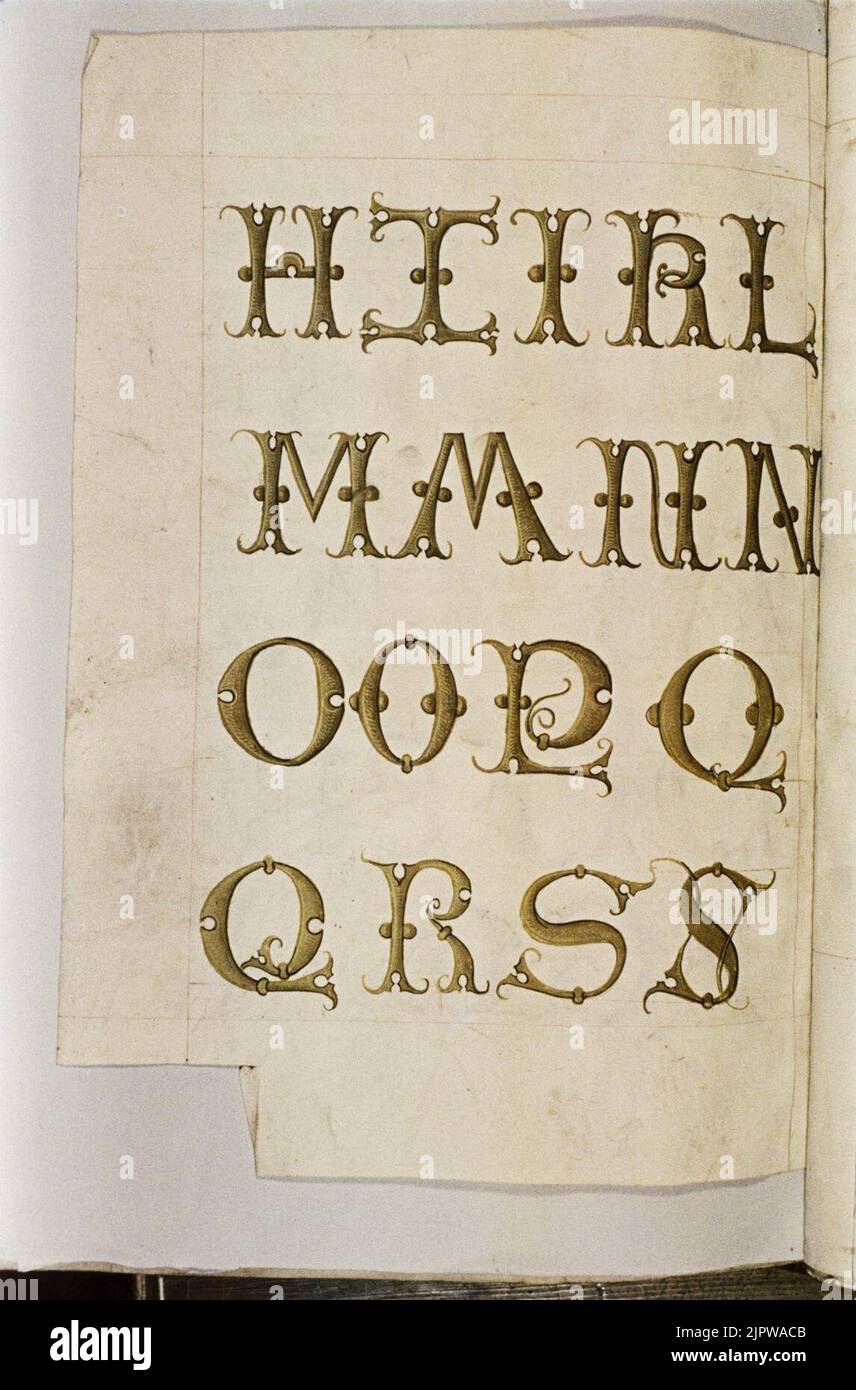 HIIKL
MMNN
OOPQ
QRSS
alamy
Image ID: 2JPWACB
www.alamy.com